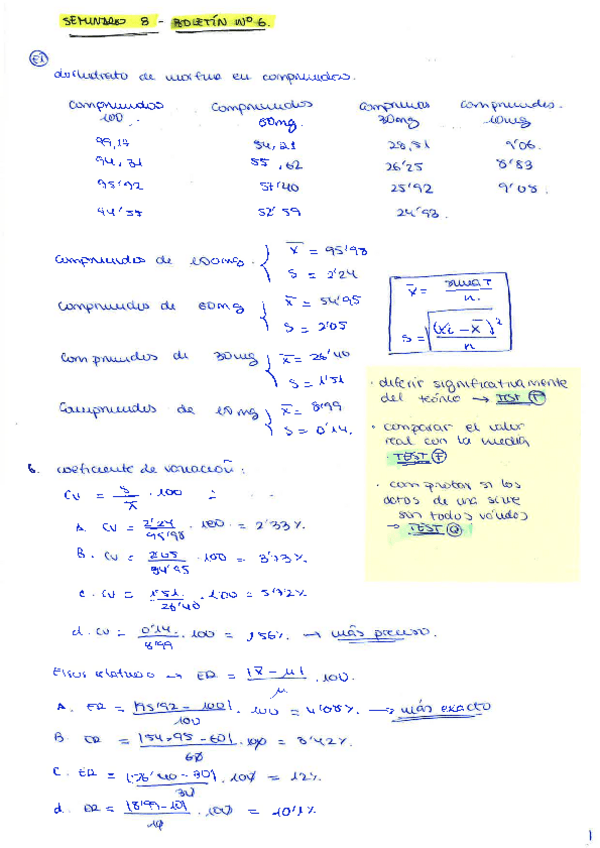 SEMINARIO 8 - BOLETÍN Nº 6.
E1
clorhidrato de morfina en comprimidos.
comprimidos 100 comprimidos 60mg. comprimidos 30mg comprimidos 10mg
99,17 54,21 28,51 9'06.
94,31 55,62 26'25 8'83
95'92 57'40 25'92 9'08.
94'57 52'59 24'93.
comprimidos de 100mg. x̄ = 95'98
S = 2'24
comprimidos de 60mg x̄ = 54'95
S = 2'05
comprimidos de 30mg x̄ = 26'40
S = 1'51
Comprimidos de 10mg x̄ = 8'99
S = 0'14.
x̄ = sumaT / n.
S = √((xi - x̄)² / n)
· diferir significativamente
del teórico → TEST T
· comparar el valor
real con la media
· TEST F
· comprobar si los
datos de una serie
son todos válidos
→ TEST Q
b. coeficiente de variación:
CV = S/x̄ · 100
A. CV = 2'24/95'98 · 100 = 2'33%.
B. CV = 2'05/54'95 · 100 = 3'73%.
c. CV = 1'51/26'40 · 100 = 5'72%
d. CV = 0'14/8'99 · 100 = 1'56%. → más preciso.
Error relativo → ER = |x̄ - μ|/μ · 100.
A. ER = |95'92 - 100|/100 · 100 = 4'08%. → más exacto
B. ER = |54,95 - 60|/60 · 100 = 8'42%.
C. ER = |26'40 - 30|/30 · 100 = 12%
d. ER = |8'99 - 10|/10 · 100 = 10'1%
1